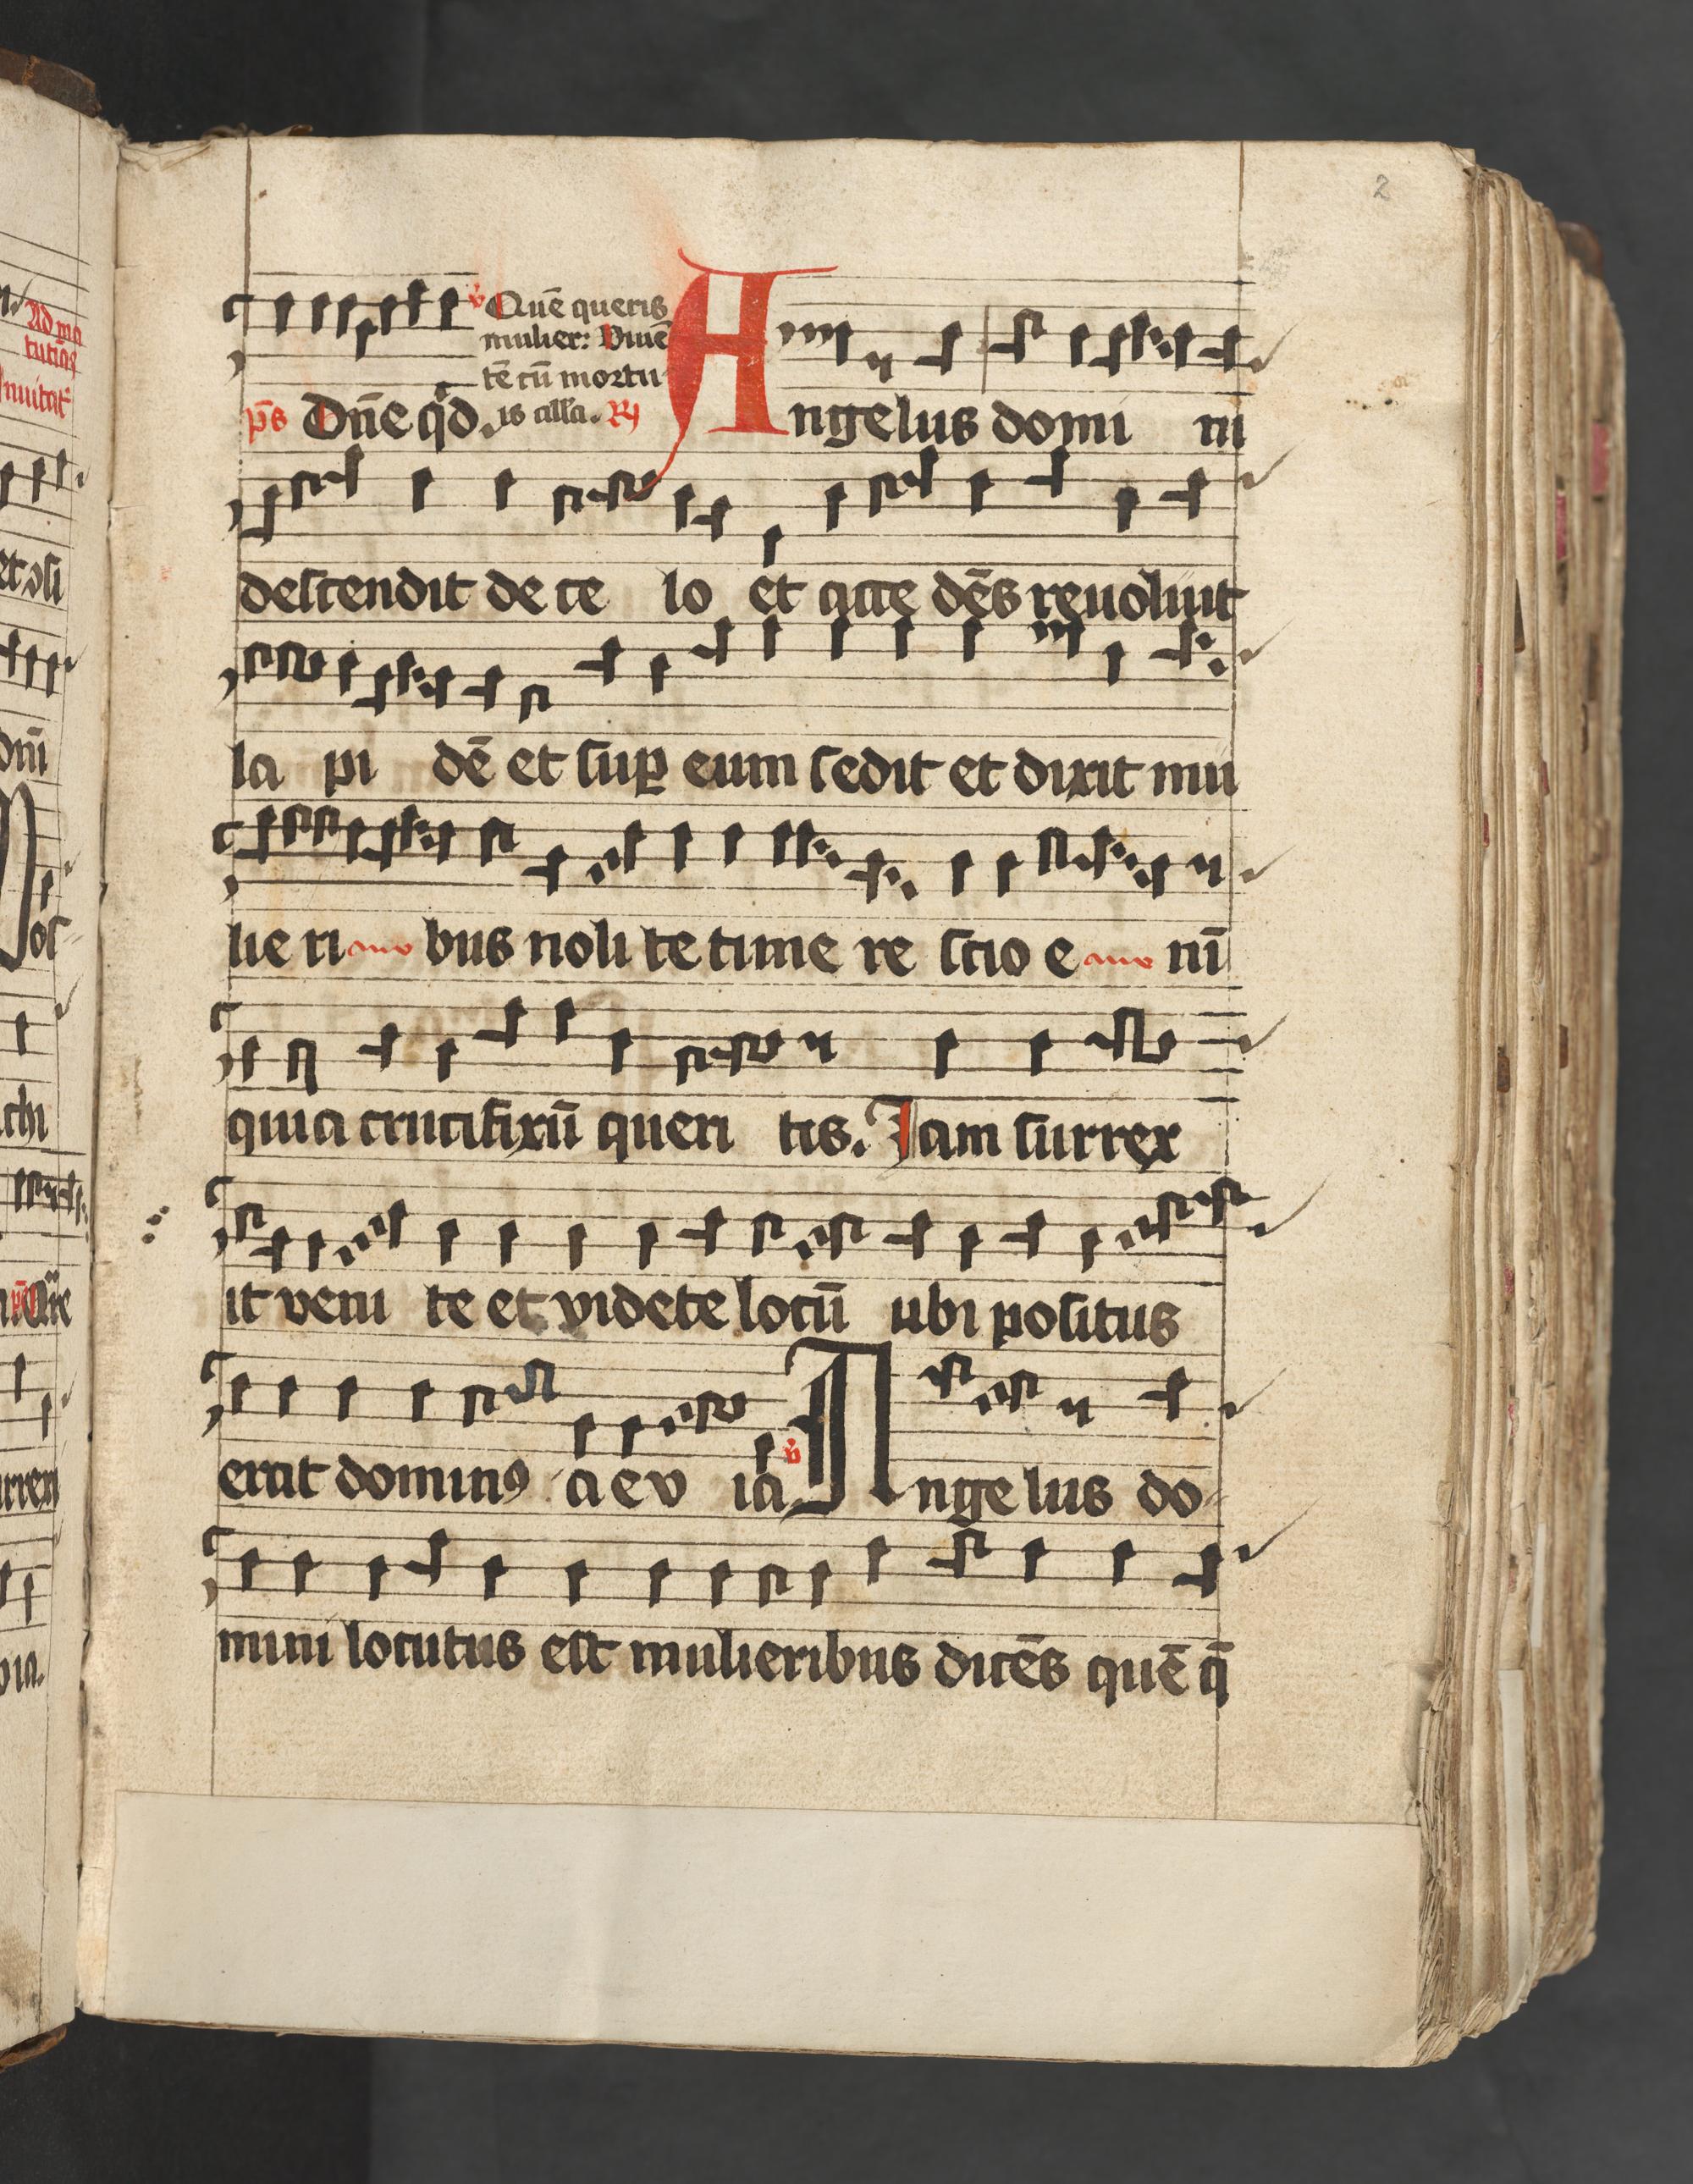 2
v̄ Quē queris
mulier: Viuē
tē cū mortu
p̄s Dn̄e qd̄. is all'a. R
Angelus domi ni
descendit de ce lo et acce dēs reuoluit
la pi dē et sup eum sedit et dixit mu
lie ri bus noli te time re scio e nī
quia crucifixū queri tis. Iam surrex
it veni te et videte locū ubi positus
erat dominꝰ a e v ia v̄ Angelus do
mini locutus est mulieribus dicēs quē q̄
Ad ma
Inuitat